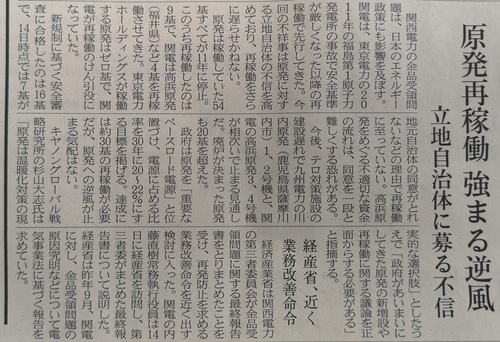 原発再稼働 強まる逆風
立地自治体に募る不信
関西電力の金品受領問
題は、日本のエネルギー
政策にも影響を及ぼす。
関電は、東京電力の20
11年の福島第1原子力
発電所の事故で安全基準
が厳しくなった以降の再
稼働で先行してきた。今
回の不祥事は原発に対す
る立地自治体の不信を高
めており、再稼働をさら
に遅らせかねない。
原発は稼働していた54
基すべてが11年に停止。
このうち再稼働したのは
9基で、関電は高浜原発
(福井県)など4基を再稼
働させてきた。東京電力
ホールディングスが稼働
する原発はゼロ基で、関
電が再稼働のけん引役に
なっていた。
新規制に基づく安全審
査に合格したのは16基
で、14日時点では7基が
地元自治体の同意がとれ
ないなどの理由で再稼働
に至っていない。高浜原
発をめぐる不適切な資金
の流れは、同意を一段と
難しくする恐れがある。
今後、テロ対策施設の
建設遅れで九州電力の川
内原発(鹿児島県薩摩川
内市)1、2号機と、関
電の高浜原発3、4号機
が相次いで止まる見通し
だ。廃炉が決まった原発
も20基を超えた。
政府は原発を「重要な
ベースロード電源」と位
置づけ、電源に占める比
率を30年に20〜22%にす
る目標を掲げる。達成に
は約30基の再稼働が必要
だが、原発への逆風が止
まる気配はない。
キヤノングローバル戦
略研究所の杉山大志氏は
「原発は温暖化対策の現
実的な選択肢」としたう
えで「政府があいまいに
してきた原発の新増設や
再稼働に関する議論を正
面からする必要がある」
と指摘する。
経産省、近く
業務改善命令
経済産業省は関西電力
の第三者委員会が金品受
領問題に関する最終報告
書をとりまとめたことを
受け、再発防止を求める
業務改善命令を近く出す
検討に入った。関電の内
藤直樹常務執行役員は14
日に経産省を訪問し、第
三者委がまとめた最終報
告書について説明した。
経産省は昨年9月、関電
に対し、金品受領問題の
原因究明などについて電
気事業法に基づく報告を
求めていた。